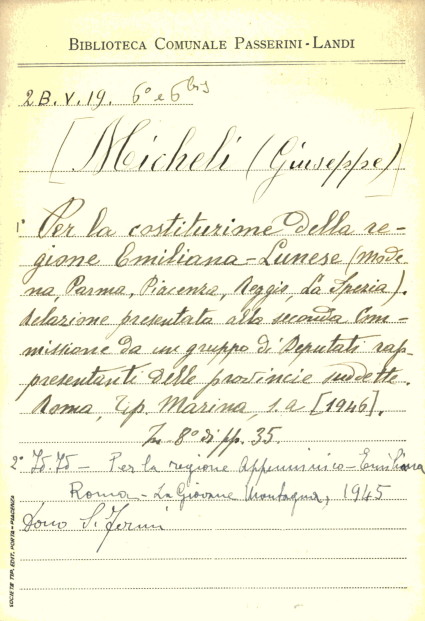 BIBLIOTECA COMUNALE PASSERINI-LANDI
2B.V.19. 6° e 6bis
[Micheli (Giuseppe)]
1° Per la costituzione della re-
gione Emiliana-Lunese (Mode
na, Parma, Piacenza, Reggio, La Spezia).
Relazione presentata alla seconda Com-
missione da un gruppo di Deputati rap-
presentanti delle provincie suddette.
Roma, Tip. Marina, s.a [1946].
In 8° di pp. 35.
2° Id. Id - Per la regione Appenninico-Emiliana
Roma - La Giovane Montagna, 1945
Dono S. Fermi
SOCIETÀ TIP. EDIT. PORTA - PIACENZA